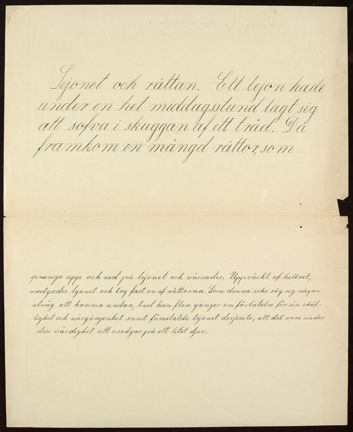 Lejonet och råttan. Ett lejon hade
under en het middagsstund lagt sig
att sofva i skuggan af ett träd. Då
framkom en mängd råttor, som
sprungo upp och ned på lejonet och väsnades. Uppväckt af bullret,
vredgades lejonet och tog fast en af råttorna. Som denna icke såg sig någon
utväg att komma undan, bad han flera gånger om förlåtelse för sin
lighet och närgångenhet samt föreställde lejonet derjemte, att det vore under
dess värdighet att vredgas på ett litet djur.